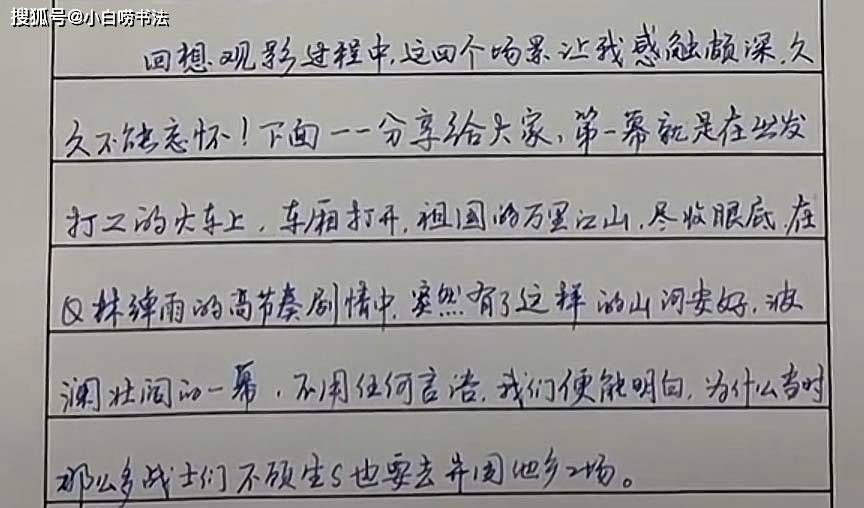 搜狐号@小白唠书法
回想观影过程中,这四个场景让我感触颇深,久
久不能忘怀!下面一一分享给大家、第一幕就是在出发
打工的火车上,车厢打开,祖国的万里江山,尽收眼底,在
Q林弹雨的高节奏剧情中,突然有了这样的山河安好,波
澜壮阔的一幕,不用任何言语,我们便能明白,为什么当时
那么多战士们不顾生S也要去异国他乡工场。